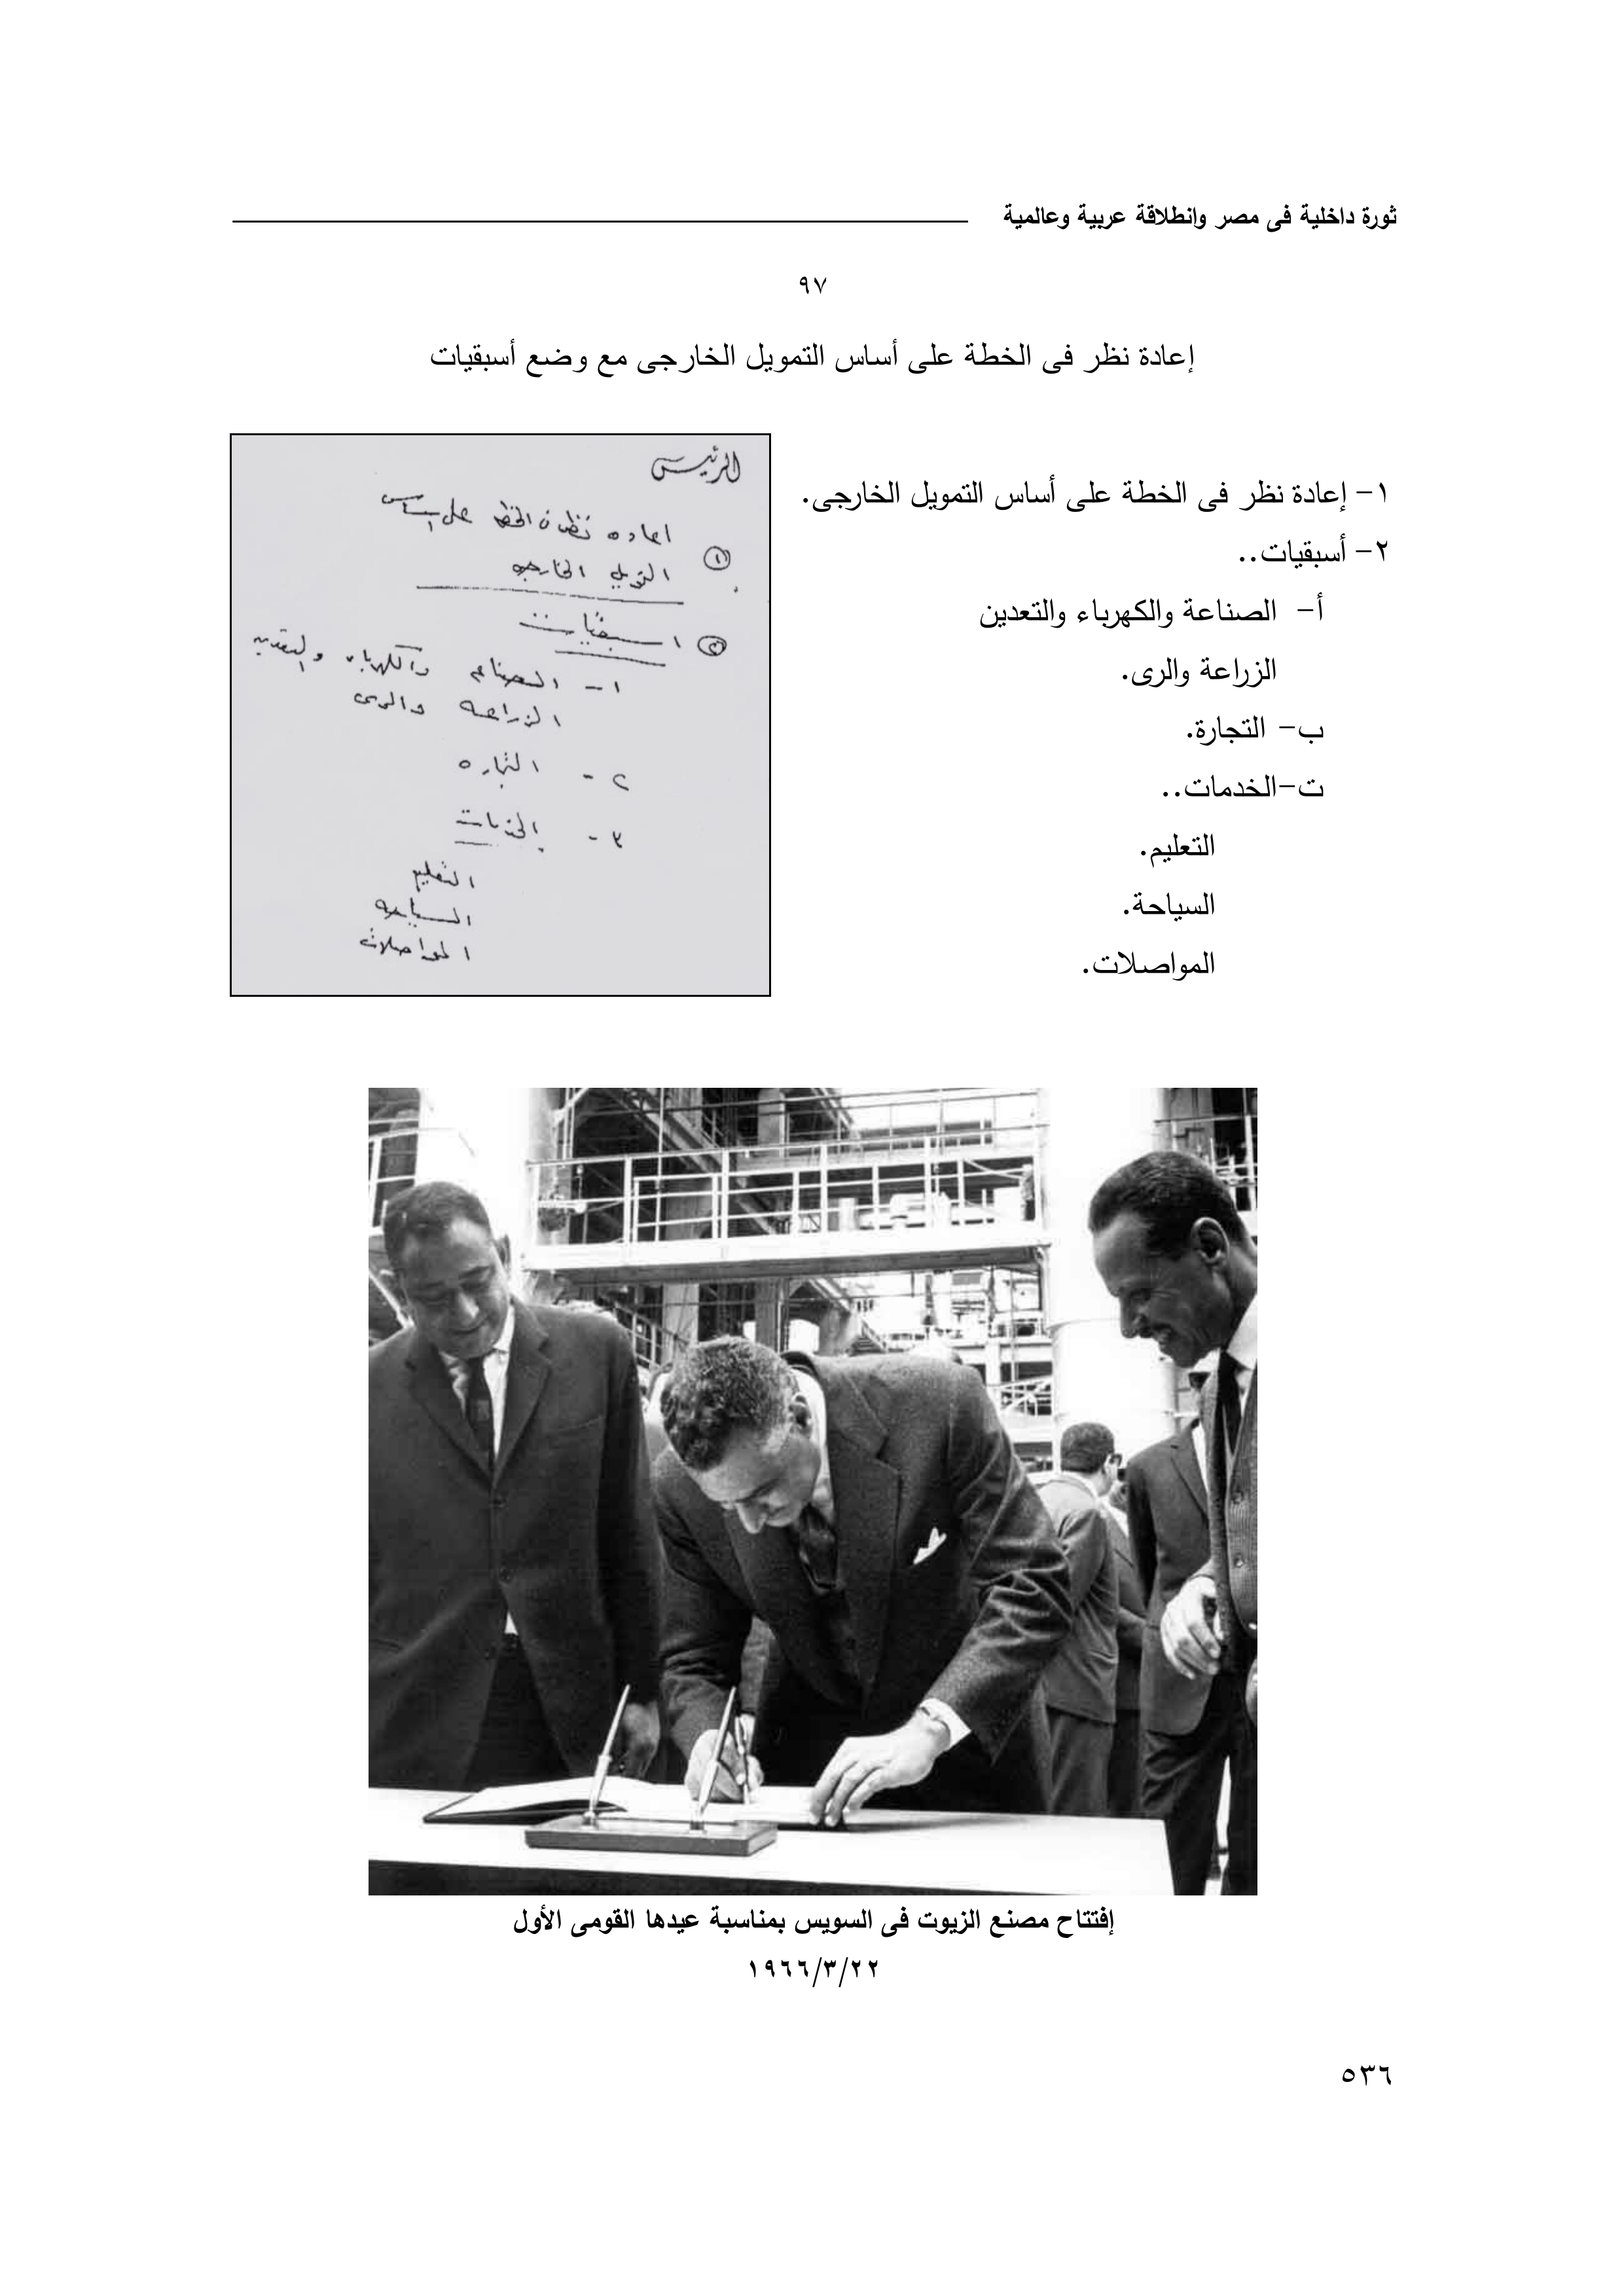 ثورة داخلية فى مصر وانطلاقة عربية وعالمية
٩٧
إعادة نظر فى الخطة على أساس التمويل الخارجى مع وضع أسبقيات
١- إعادة نظر فى الخطة على أساس التمويل الخارجى.
٢- أسبقيات..
أ- الصناعة والكهرباء والتعدين
الزراعة والرى.
ب- التجارة.
ت-الخدمات..
التعليم.
السياحة.
المواصلات.
الرئيس
١ اعاده نظر فى الخطه على اساس
التمويل الخارجى
٢ اسبقيات
١- الصناعه والكهرباء والتعدين
الزراعه والرى
٢- التجاره
٣- الخدمات
التعليم
السياحه
المواصلات
إفتتاح مصنع الزيوت فى السويس بمناسبة عيدها القومى الأول
١٩٦٦/٣/٢٢
٥٣٦